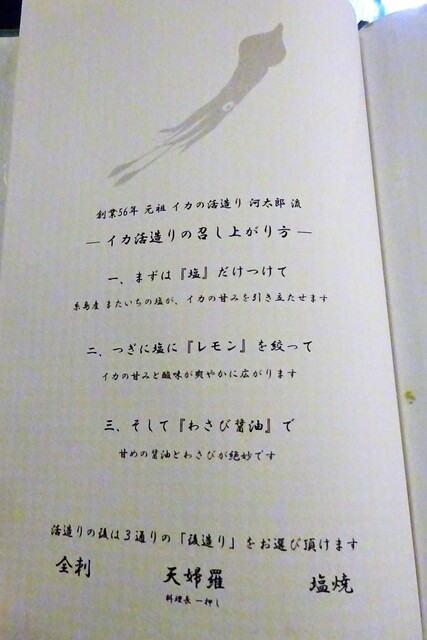 創業56年 元祖 イカの活造り 河太郎 流
― イカ活造りの召し上がり方 ―
一、まずは『塩』だけつけて
糸島産 またいちの塩が、イカの甘みを引き立たせます
二、つぎに塩に『レモン』を絞って
イカの甘みと酸味が爽やかに広がります
三、そして『わさび醤油』で
甘めの醤油とわさびが絶妙です
活造りの後は3通りの「後造り」をお選び頂けます
全刺 天婦羅 塩焼
料理長 一押し